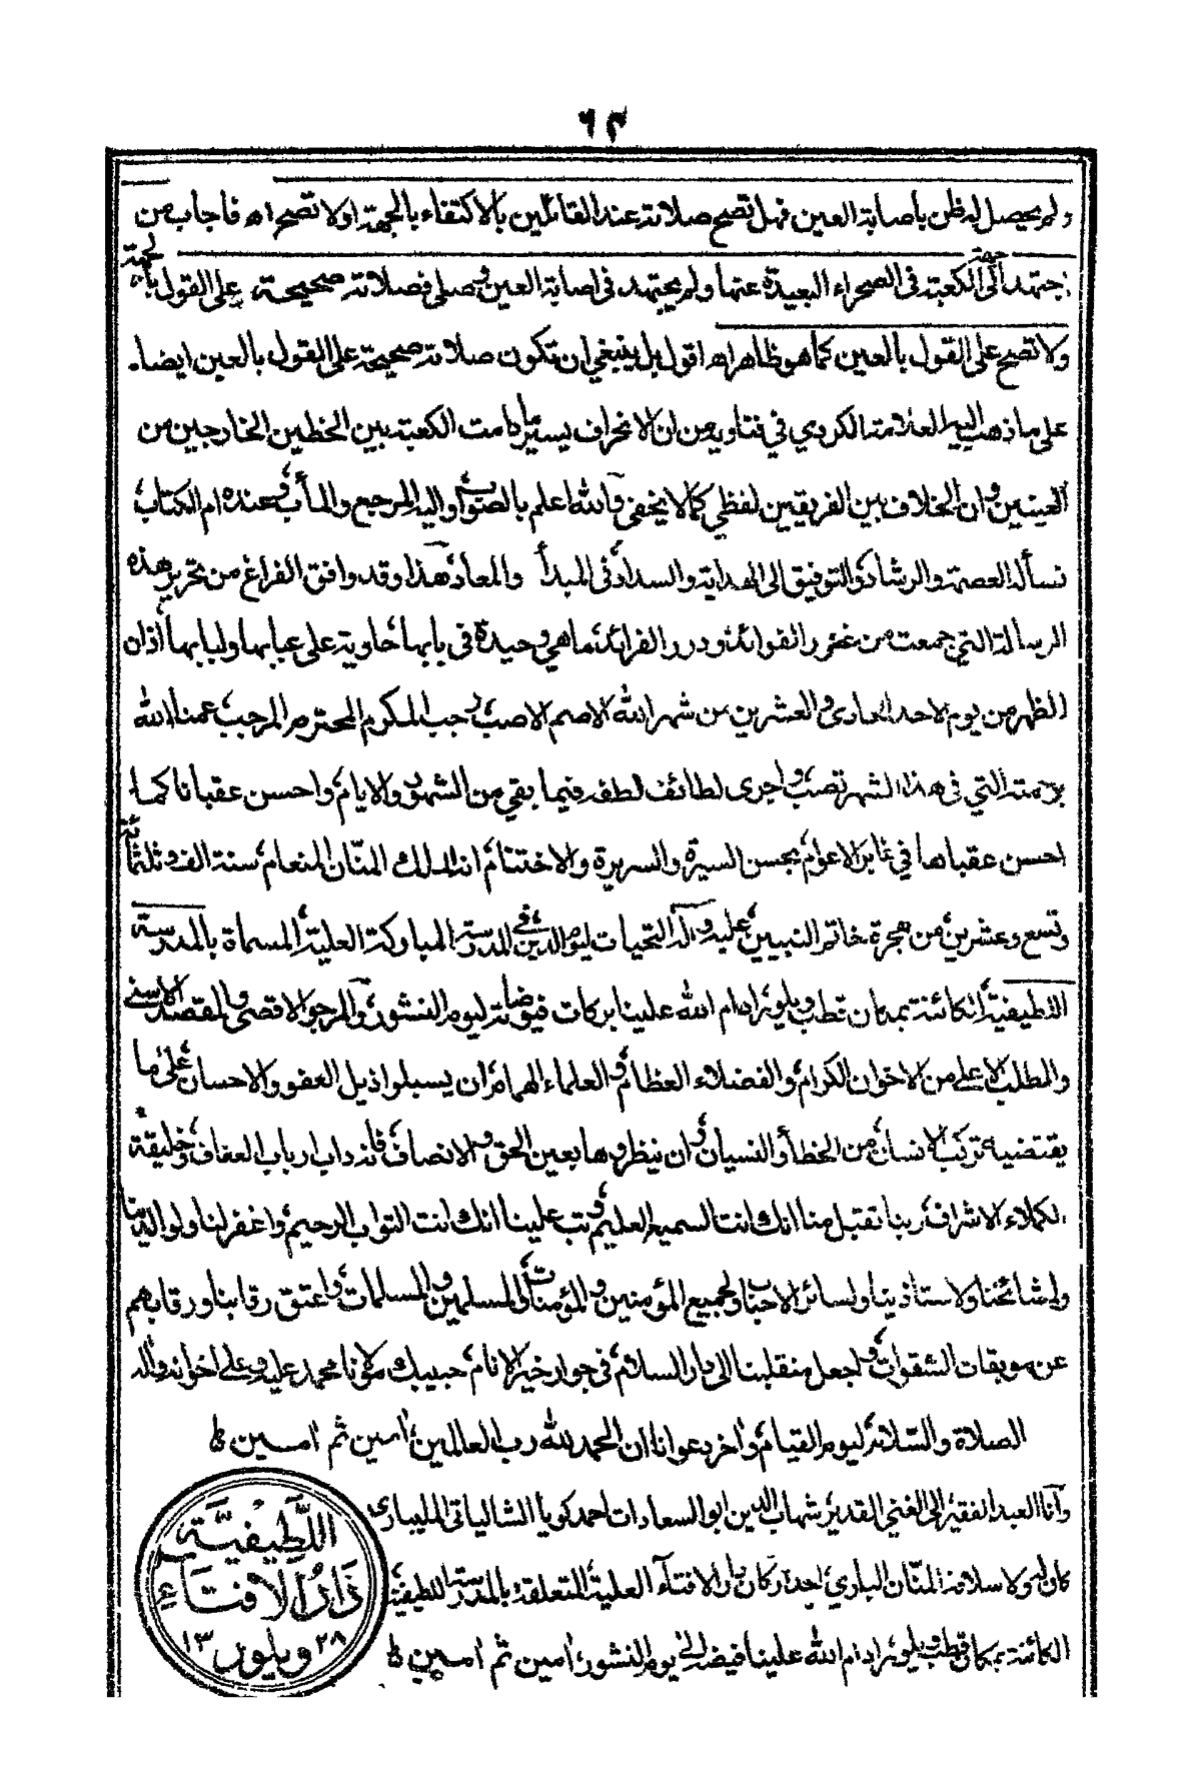 ٦٣
ولم يحصل له ظن باصابة العين فهل تصح صلاته عند القائلين بالاكتفاء بالجهة اولا تصح اه فاجاب من
اجتهد الى جهة الكعبة في الصحراء البعيدة عنها ولم يجتهد في اصابة العين وصلى فصلاته صحيحة على القول بالجهة
ولا تصح على القول بالعين كما هو ظاهر اه اقول بل ينبغي ان تكون صلاته صحيحة على القول بالعين ايضا
على ما ذهب اليه العلامة الكردي في فتاويه من ان الانحراف يسير مادامت الكعبة بين الخطين الخارجين من
العينين وان الخلاف بين الفريقين لفظي كما لا يخفى والله اعلم بالصواب واليه المرجع والمأب وعنده ام الكتاب
نسأله العصمة والرشاد والتوفيق الى الهداية والسداد في المبدأ والمعاد هذا وقد وافق الفراغ من تحرير هذه
الرسالة التي جمعت من غرر الفوائد ودرر الفرائد ما هي وحيدة في بابها حاوية على عبابها ولبابها أذان
الظهر من يوم الاحد الحادي والعشرين من شهر الله الاصم الاصب رجب المكرم المحترم المرجب عمنا الله
برحمته التي في هذا الشهر تصب واجرى لطائف لطفه فيما بقي من الشهور والايام واحسن عقبانا كما
احسن عقباها في غابر الاعوام بحسن السيرة والسريرة والاختتام انه الملك المنّان المنعام سنة الف وثلثمائة
وتسع وعشرين من هجرة خاتم النبيين عليه وآله التحيات ليوم الدين في المدرسة المباركة العلية المسماة بالمدرسة
اللطيفية الكائنة بمكان قطب ويلور ادام الله علينا بركات فيوضاته ليوم النشور والمرجو الاقصى والمقصد الاسنى
والمطلب الاعلى من الاخوان الكرام والفضلاء العظام والعلماء الهمام ان يسبلوا ذيل العفو والاحسان على ما
يقتضيه تركب الانسان من الخطأ والنسيان وان ينظروها بعين الحق والانصاف فانه داب ارباب العفاف وخليقة
الكملاء الاشراف ربنا تقبل منا انك انت السميع العليم وتب علينا انك انت التواب الرحيم واغفر لنا ولوالدينا
ولمشائخنا ولاستاذينا ولسائر الاحباب ولجميع المؤمنين والمؤمنات والمسلمين والمسلمات واعتق رقابنا ورقابهم
عن موبقات الشقوات واجعل منقلبنا الى دار السلام في جوار خير الانام حبيبك مولانا محمد عليه وعلى اخوانه وآله
الصلاة والسّلام ليوم القيام وآخر دعوانا ان الحمد لله رب العالمين اٰمين ثم اٰمين
وأنا العبد الفقير الى الغني القدير شهاب الدين ابو السعادات احمد كويا الشالياتي المليباري
كان له ولاسلافه المنّان الباري احد اركان دار الافتآء العلية المتعلقة بالمدرسة اللطيفية
الكائنة بمكان قطب ويلور ادام الله علينا فيضه الى يوم النشور اٰمين ثم اٰمين
اللَّطِيفِيَّة
دَارُ الاِفتَاءِ
١٣ ويلور ٢٨